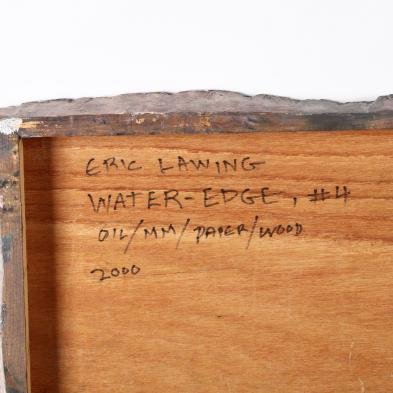 ERIC LAWING
WATER-EDGE, #4
OIL/MM/PAPER/WOOD
2000